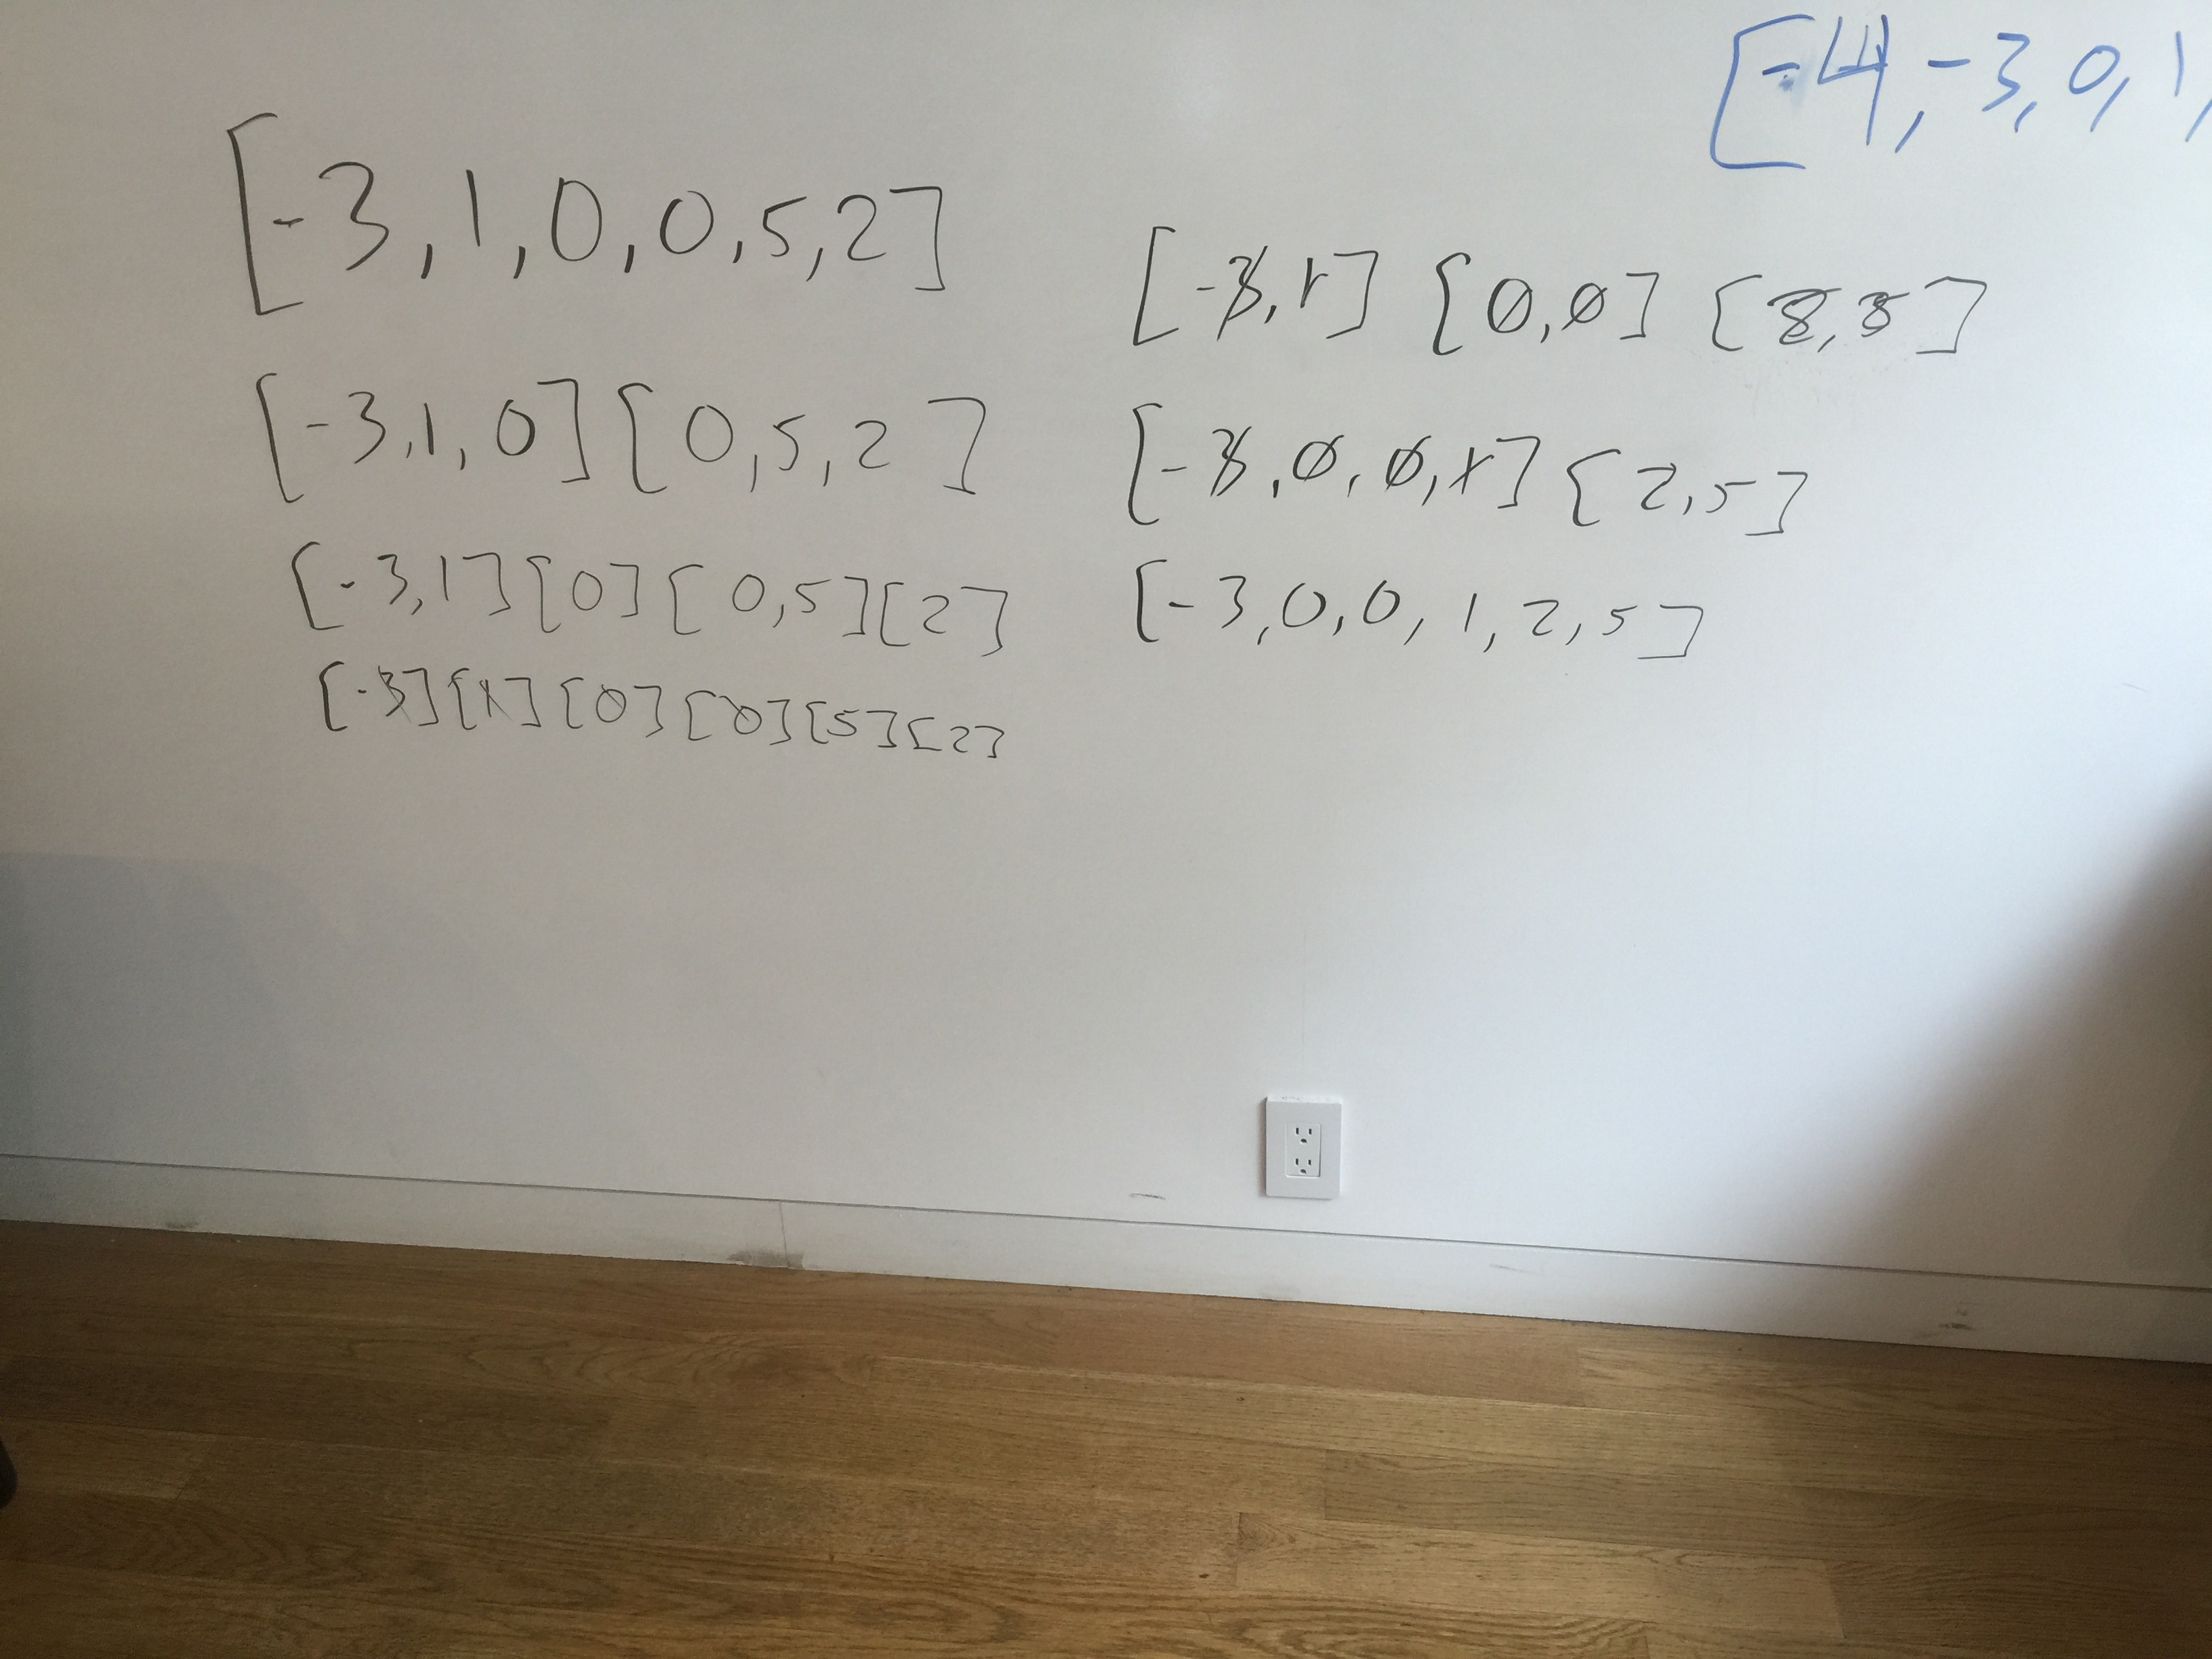 [-4, -3, 0, 1,
[-3, 1, 0, 0, 5, 2]
[-3, 1, 0] [0, 5, 2]
[-3, 1] [0] [0, 5] [2]
[-3] [1] [0] [0] [5] [2]
[-3, 1] [0, 0] [2, 5]
[-3, 0, 0, 1] [2, 5]
[-3, 0, 0, 1, 2, 5]